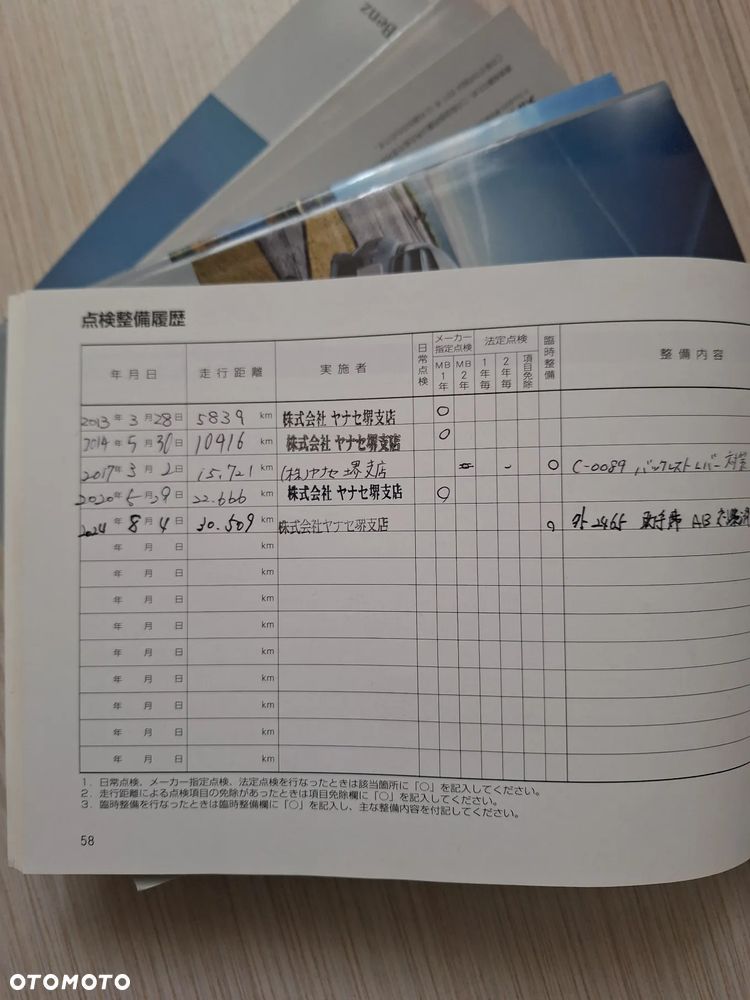 Benz
点検整備履歴
年月日 走行距離 実施者 日常点検 メーカー指定点検 MB1年 MB2年 法定点検 1年毎 2年毎 項目免除 臨時整備 整備内容
2013年 3月28日 5839 km 株式会社 ヤナセ堺支店 ○
2014年 5月30日 10916 km 株式会社 ヤナセ堺支店 ○
2017年 3月 2日 15,721 km (株)ヤナセ 堺支店 ○ C-0089 バックレストレバー対策
2020年 5月29日 22.666 km 株式会社 ヤナセ堺支店 ○
2024年 8月 4日 30.509 km 株式会社ヤナセ堺支店 ○ 外2465 助手席 AB
年 月 日 km
年 月 日 km
年 月 日 km
年 月 日 km
年 月 日 km
年 月 日 km
年 月 日 km
年 月 日 km
年 月 日 km
1. 日常点検、メーカー指定点検、法定点検を行なったときは該当箇所に「○」を記入してください。
2. 走行距離による点検項目の免除があったときは項目免除欄に「○」を記入してください。
3. 臨時整備を行なったときは臨時整備欄に「○」を記入し、主な整備内容を付記してください。
58
OTOMOTO